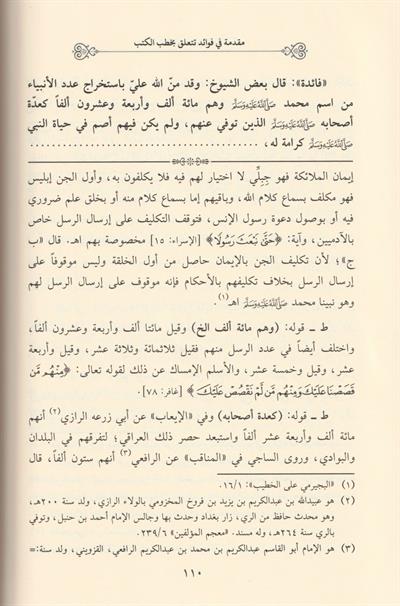 مقدمة في فوائد تتعلق بخطب الكتب
«فائدة»: قال بعض الشيوخ: وقد منّ الله عليّ باستخراج عدد الأنبياء
من اسم محمد ﷺ وهم مائة ألف وأربعة وعشرون ألفاً كعدّة
أصحابه ﷺ الذين توفي عنهم، ولم يكن فيهم أصم في حياة النبي
ﷺ كرامة له، ........................................
إيمان الملائكة فهو جِبِلِّي لا اختيار لهم فيه فلا يكلفون به، وأول الجن إبليس
فهو مكلف بسماع كلام الله، وباقيهم إما بسماع كلام منه أو بخلق علم ضروري
فيه أو بوصول دعوة رسول الإنس، فتوقف التكليف على إرسال الرسل خاص
بالآدميين، وآية: ﴿حَتَّى نَبْعَثَ رَسُولًا﴾ [الإسراء: ١٥] مخصوصة بهم اهـ. قال «ب
ج»؛ لأن تكليف الجن بالإيمان حاصل من أول الخلقة وليس موقوفاً على
إرسال الرسل بخلاف تكليفهم بالأحكام فإنه موقوف على إرسال الرسل لهم
وهو نبينا محمد ﷺ اهـ(١).
ط ـ قوله: (وهم مائة ألف الخ) وقيل مائتا ألف وأربعة وعشرون ألفاً،
واختلف أيضاً في عدد الرسل منهم فقيل ثلاثمائة وثلاثة عشر، وقيل وأربعة
عشر، وقيل وخمسة عشر، والأسلم الإمساك عن ذلك لقوله تعالى: ﴿مِنْهُم مَّن
قَصَصْنَا عَلَيْكَ وَمِنْهُم مَّن لَّمْ نَقْصُصْ عَلَيْكَ﴾ [غافر: ٧٨].
ط ـ قوله: (كعدة أصحابه) وفي «الإيعاب» عن أبي زرعه الرازي(٢) أنهم
مائة ألف وأربعة عشر ألفاً واستبعد حصر ذلك العراقي؛ لتفرقهم في البلدان
والبوادي، وروى الساجي في «المناقب» عن الرافعي(٣) أنهم ستون ألفاً، قال
(١) «البجيرمي على الخطيب»: ١٦/١.
(٢) هو عبيدالله بن عبدالكريم بن يزيد بن فروخ المخزومي بالولاء الرازي، ولد سنة ٢٠٠هـ،
وهو محدث حافظ من الري، زار بغداد وحدث بها وجالس الإمام أحمد بن حنبل، وتوفي
بالري سنة ٢٦٤هـ، وله مسند. «معجم المؤلفين» ٢٣٩/٦.
(٣) هو الإمام أبو القاسم عبدالكريم بن محمد بن عبدالكريم الرافعي، القزويني، ولد سنة:=
١١٠